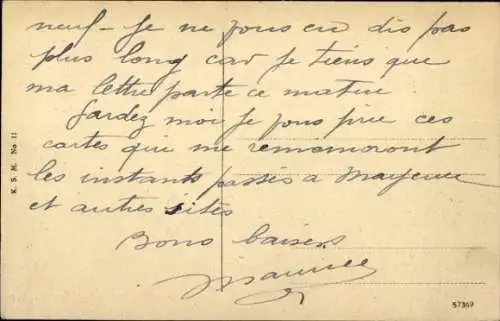 neuf - Je ne vous en dis pas
plus long car je tiens que
ma lettre parte ce matin.
Gardez moi je vous prie ces
cartes qui me remémoront
les instants passés a Mayence
et autres sites
Bons baisers
Maurice
K. S. M. No. 11
57369